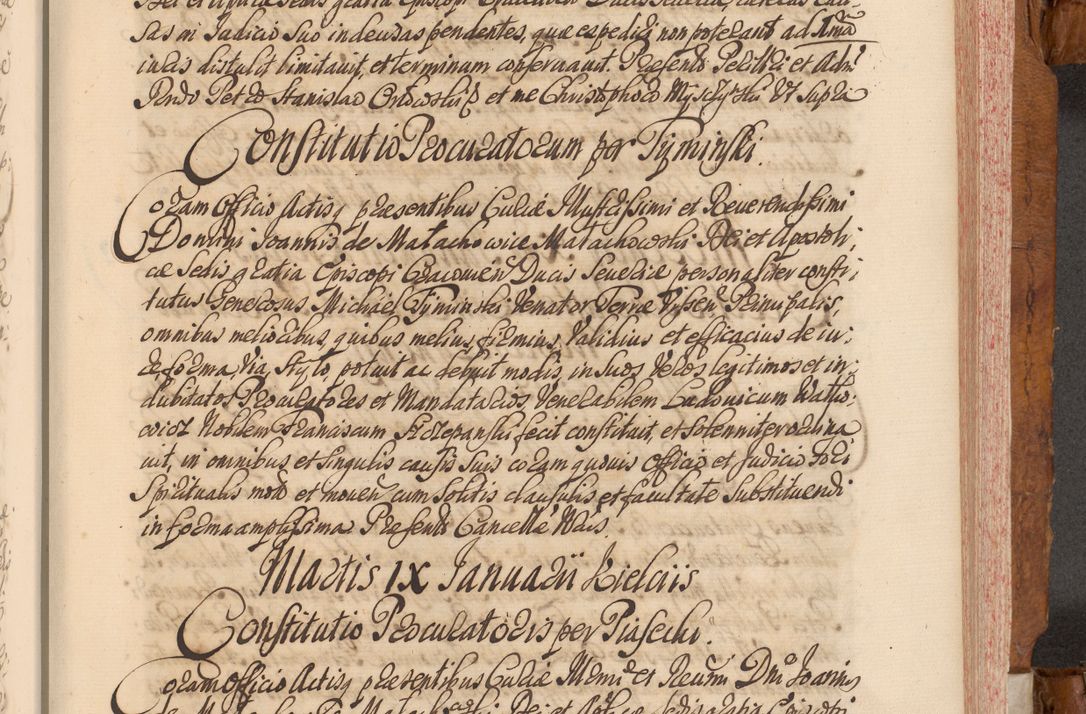 Dei et Apcae Sedis gratia Episcopi Cracovien Ducis Severiae, certas cau-
sas in Judicio Suo indecisas pendentes, quae expediri non poterant ad
iuris distulit limitavit, et terminum conservavit. Presents et
Petro Stanislao Orłowski et me Christophoro Myschyński Vt supra
Constitutio Procuratorum per Tyminski.
Coram Officio Actisq praesentibus Curiae Illustrissimi et Reverendissimi
Domini Joannis de Małachowice Małachowski Dei et Apostoli,
cae Sedis gratia Episcopi Cracovien Ducis Severiae personaliter consti,
tutus Generosus Michael Tyminski Venator Terrae Principalis,
omnibus melioribus, quibus melius, firmius, Validius et efficacius de iu,
re forma, Via, Stylo, potuit ac debuit modis, in Suos Veros legitimos et in,
dubitatos Procuratores et Mandatarios Venerabilem Ludovicum
Nobilem Franciscum fecit constituit, et solenniter ordina
vit, in omnibus et singulis causis Suis coram quovis Officio et Judicio Fori
Spiritualis mot et moven cum solitis clausulis et facultate Substituendi
in forma amplissima Presents Cancellr
Martis IX Januarii Kielciis
Constitutio Procuratoris per Piasecki.
Coram Officio Actisq praesentibus Curiae Illmi et Rcumi Dni Joannis
de Małachowice Małachowski Dei et Aplicae Sedis gratia Episcopi